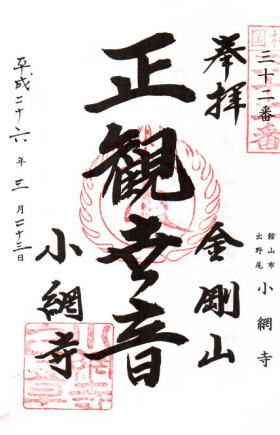 三十二番
館山市
出野尾
小網寺
奉拝
金剛山
正観世音
小網寺
平成二十六年三月二十三日